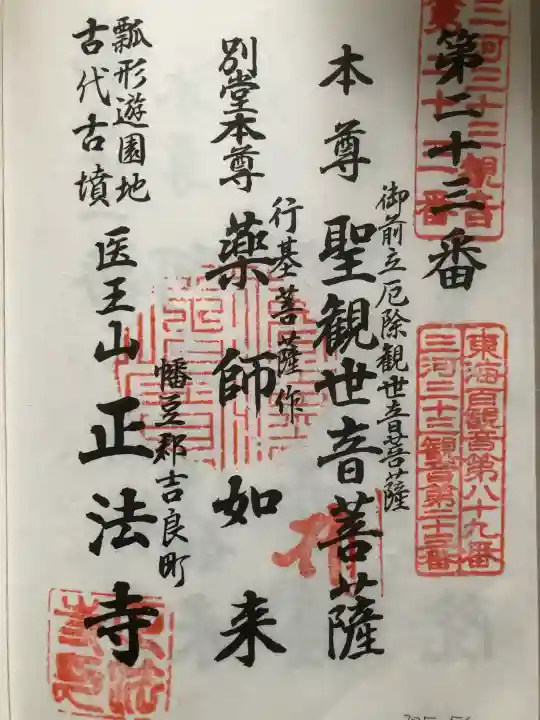 第二十三番
三河三十三観音
東海百観音第八十九番
三河三十三観音第二十三番
御前立厄除観世音菩薩
本尊 聖観世音菩薩
行基菩薩作
別堂本尊 薬師如来
幡豆郡吉良町
瓢形遊園地
古代古墳
医王山 正法寺